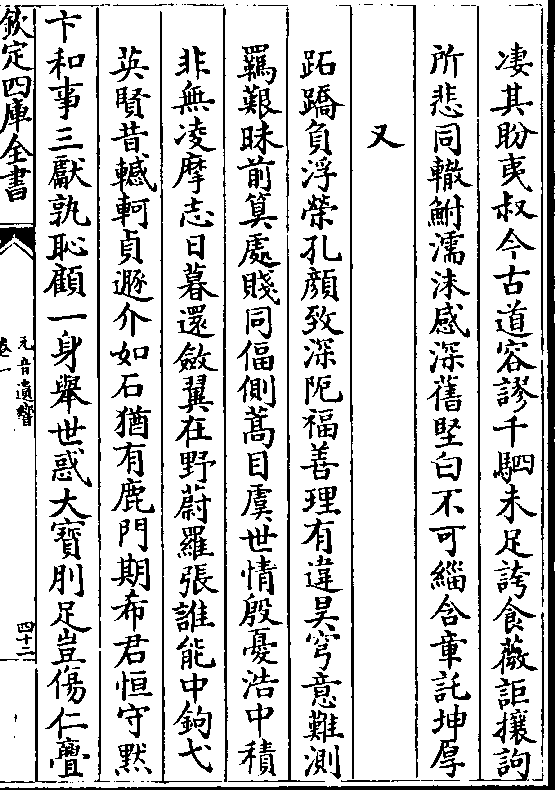 凄其盼夷叔今古道容謬千駟未足誇食薇詎攘詢
所悲同轍鮒濡沫感深舊堅白不可緇含章託坤厚
又
跖蹻負浮榮孔顔致深阨福善理有違昊穹意難測
羈艱昧前算處賤同偪側蒿目虞世情殷憂浩中積
非無凌摩志日暮還斂翼在野蔚羅張誰能中鉤弋
英賢昔轗軻貞遯介如石猶有鹿門期希君恒守黙
卞和事三獻孰恥顧一身舉世惑大寶刖足豈傷仁亹
欽定四庫全書
元音遺響
卷一
四十二